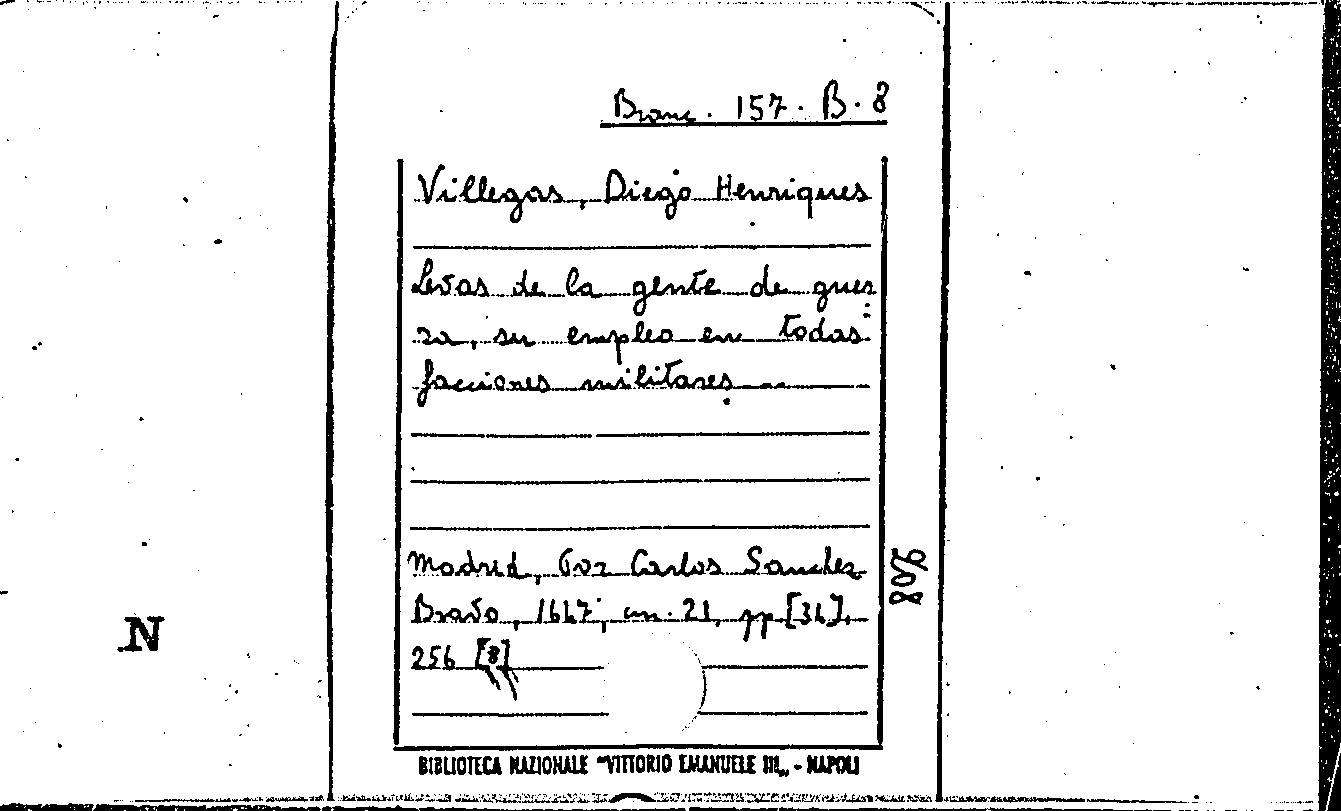 Branc. 157. B. 8
Villegas, Diego Henriques
Levas de la gente de guer
ra, su empleo en todas
facciones militares
Madrid, Por Carlos Sanchez
Bravo, 1647; cm. 21, pp [36],
256 [8]
908
N
BIBLIOTECA NAZIONALE "VITTORIO EMANUELE III„ - NAPOLI